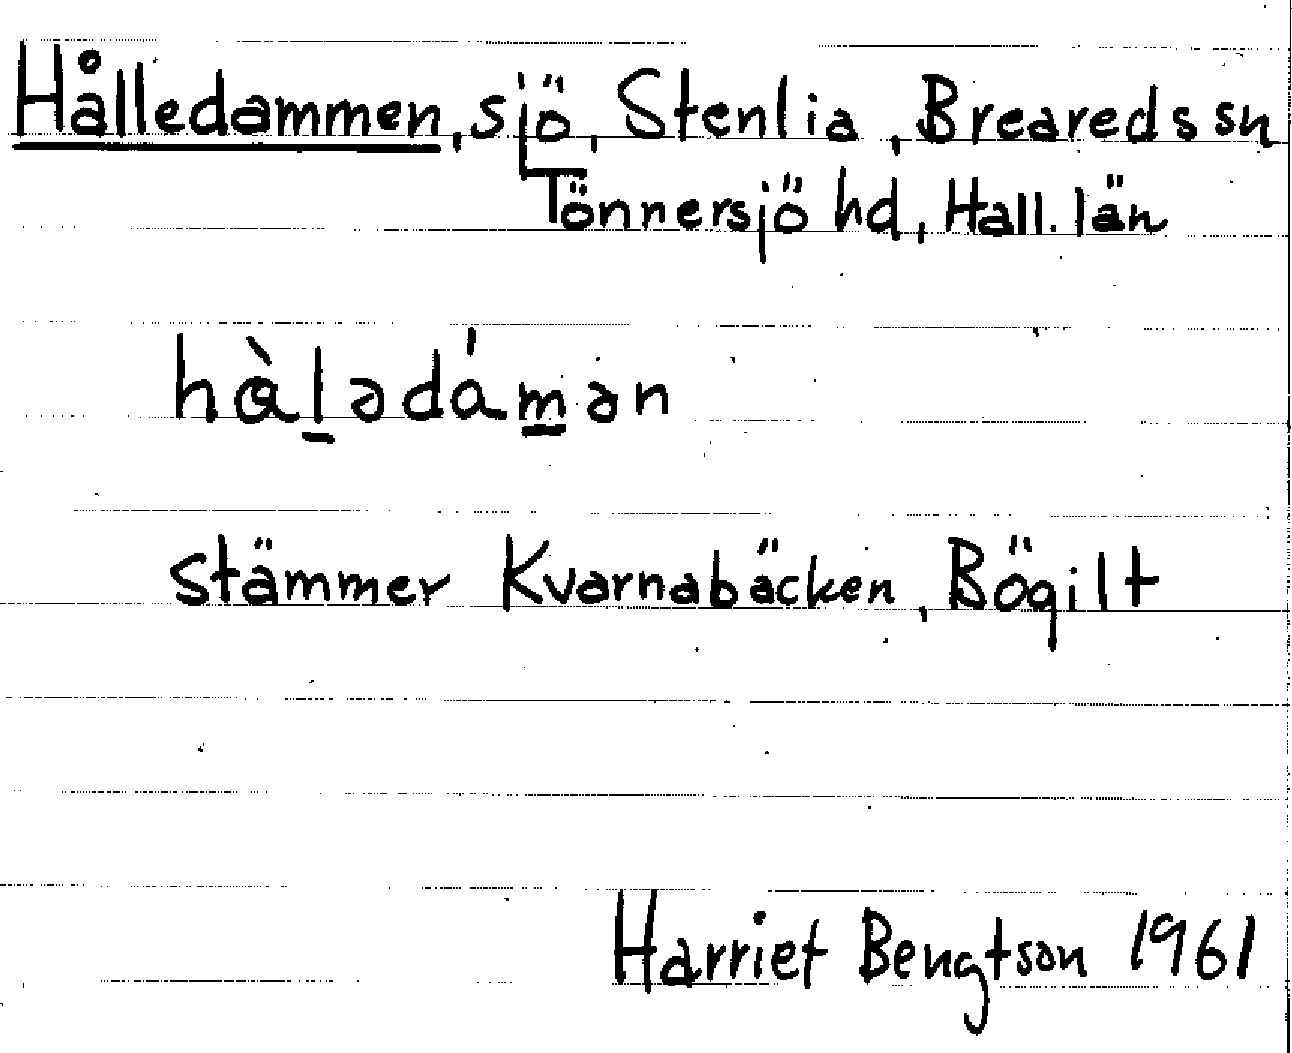 Hålledammen, sjö, Stenlia, Breareds sn
Tönnersjö hd, Hall. län
hàl̲ədám̲ən
stämmer Kvarnabäcken, Bögilt
Harriet Bengtson 1961